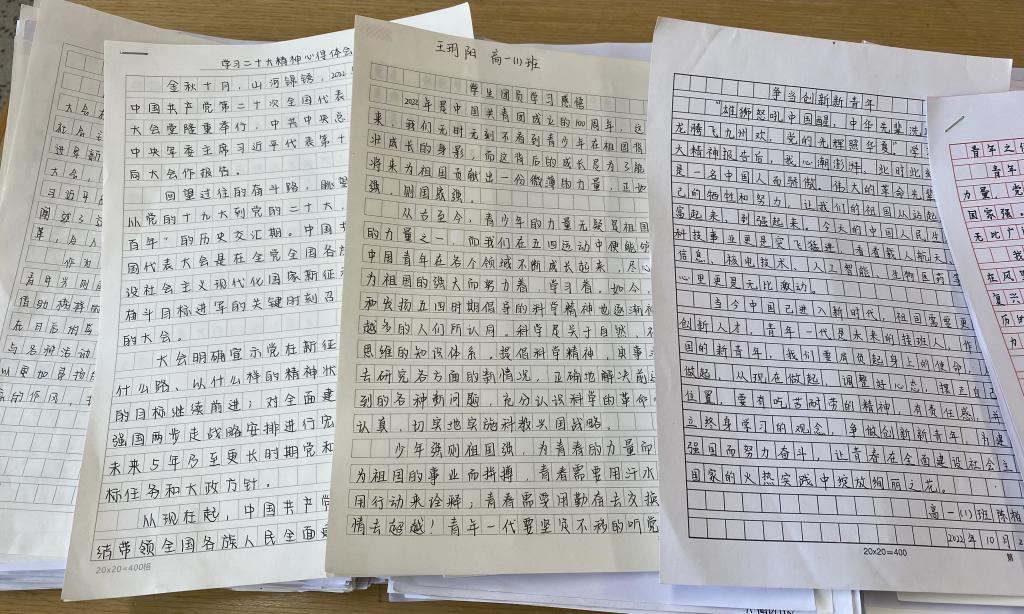 学习二十大精神心得体会
金秋十月,山河锦绣,2022
中国共产党第二十次全国代表
大会堂隆重举行,中共中央总
中央军委主席习近平代表第十
局大会作报告。
回望过往的奋斗路,眺望
从党的十九大到党的二十大,
百年"的历史交汇期。中国
国代表大会是在全党全国各
设社会主义现代化国家新征
奋斗目标进军的关键时刻召
的大会。
大会明确宣示党在新征
什么路、以什么样的精神状
的目标继续前进;对全面建
强国两步走战略安排进行宏
未来5年乃至更长时期党和
标任务和大政方针。
从现在起,中国共产党
结带领全国各族人民全面
20x20=400格
王玥阳 高一(1)班
学生团员学习感悟
2022年是中国共青团成立的100周年,这
来,我们无时无刻不看到青少年在祖国背
状成长的身影,而这背后的成长是为了能
将来为祖国贡献出一份微薄的力量,正
强,则国家强。
从古至今,青少年的力量无疑是祖国
的力量之一。而我们在五四运动中便能够
中国青年在各个领域不断成长起来,尽心
为祖国的强大而努力着,学习着。如今,
和发扬五四时期倡导的科学精神也逐渐被
越多的人们所认同。科学是关于自然、
思维的知识体系。提倡科学精神,
去研究各方面的新情况,正确地解决前
到的各种新问题,充分认识科学的革命
认真,切实地实施科教兴国战略。
少年强则祖国强,为青春的力量而
为祖国的事业而拼搏,青春需要用汗水
用行动来诠释;青春需要用勤奋去交
情去超越!青年一代要坚定不移的听党
争当创新新青年
"雄狮怒吼中国醒,中华先辈洗
龙腾飞九州欢,党的光辉照华夏"学
大精神报告后,我心潮澎湃,此时此
是一名中国人而骄傲。伟大的革命先
己的牺牲和努力,让我们的祖国从站起
富起来,到强起来。今天的中国人民生
科技事业更是突飞猛进,看着载人航天
信息,核电技术、人工智能,生物医药
心里更是无比激动。
当今中国已进入新时代,祖国需要更
创新人才,青年一代是未来的接班人,作
国的新青年,我们要肩负起身上的使命,
做起,从现在做起,调整好心态,摆正
位置,要有吃苦耐劳的精神,有责任感,并
立终身学习的观念,争做创新新青年,为建
强国而努力奋斗,让青春在全面建设社会主
国家的火热实践中绽放绚丽之花。
高一(1)班陈柏
2022年10月2
20x20=400
第
青年之
青年
力量,党
国家强。
无比广
我
在风
复兴
历的
力